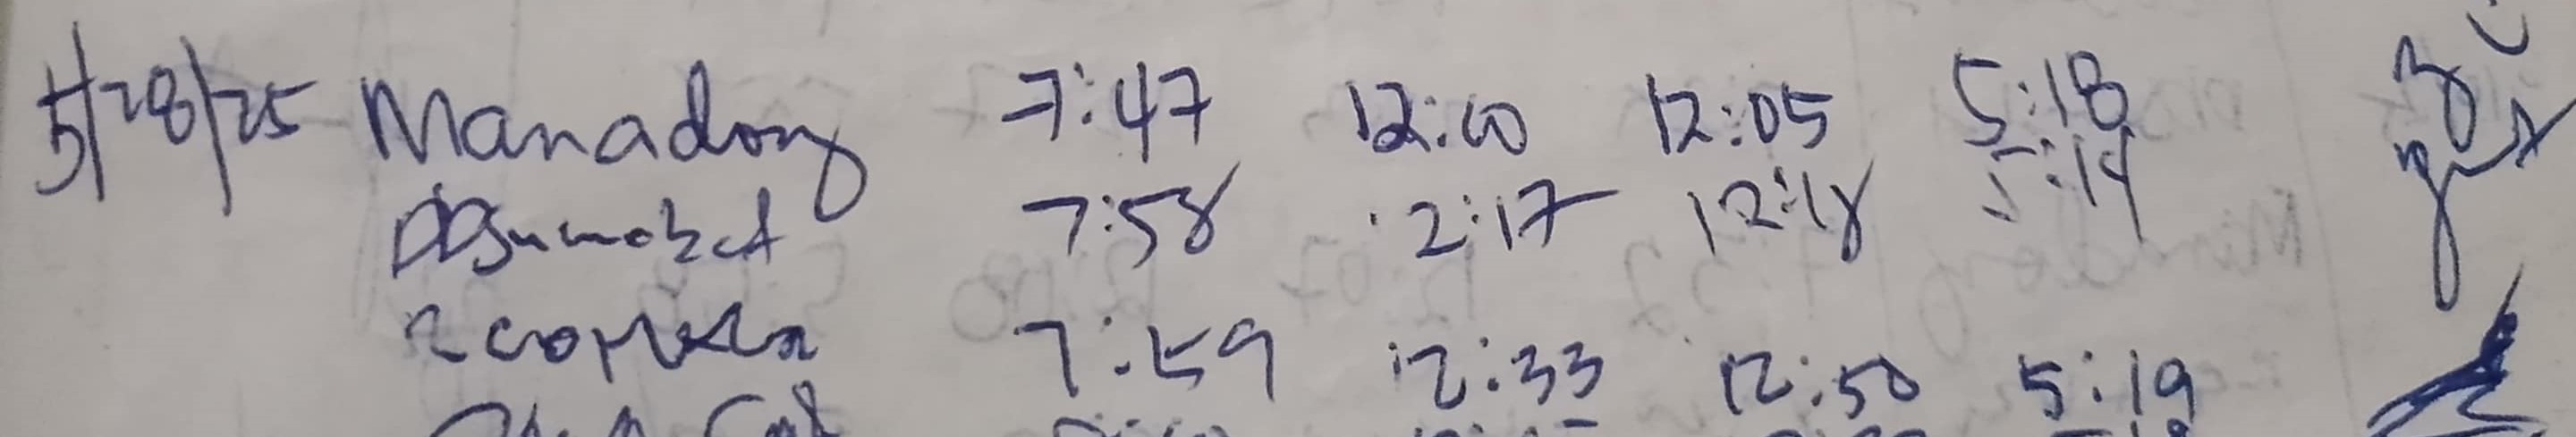 5/28/25 Manadong 7:47 12:00 12:05 5:18
7:58 12:17 12:18 5:14
7:59 12:33 12:50 5:19